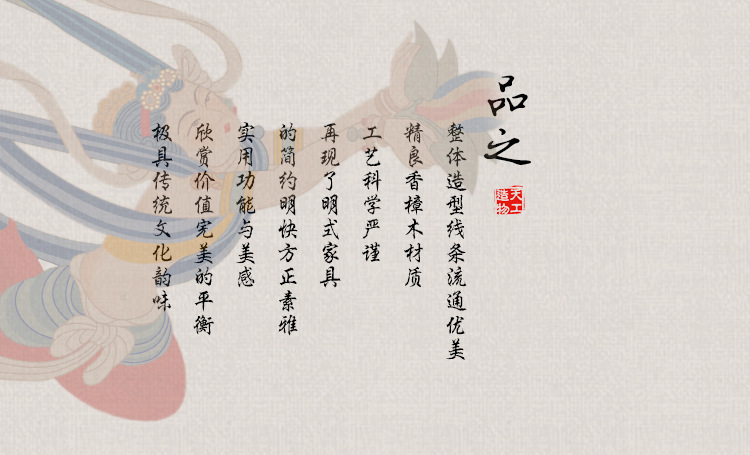 品之
天工
造物
整体造型线条流通优美
精良香樟木材质
工艺科学严谨
再现了明式家具
的简约明快方正素雅
实用功能与美感
欣赏价值完美的平衡
极具传统文化韵味